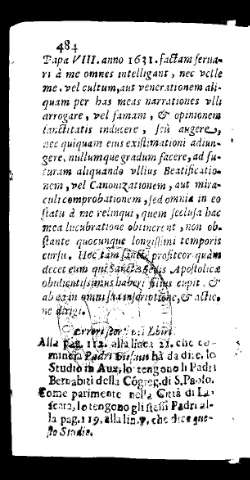 484
Papa VIII. anno 1631. factam serua-
ri à me omnes intelligant, nec velle
me. vel cultum, aut venerationem ali-
quam per has meas narrationes vlli
arrogare, vel famam, & opinionem
sanctitatis inducere, seù augere,
nec quiquam eius existimationi adiun-
gere, nullumque gradum facere, ad fu-
turam aliquando vllius Beatificatio-
nem, vel Canonizationem, aut mira-
culi comprobationem, sed omnia in eo
statu à me relinqui, quem seclusa hac
mea lucubratione obtinerent, non ob-
stante quocunque longissimi temporis
cursu. Hoc tam sancte profiteor quàm
decet eum qui Sanctæ Sedis Apostolicæ
obedientissimus haberi filius cupit. &
ab ea in omni sua scriptione, & actio-
ne dirigi.
Errori scorsi nei Libri.
Alla pag. 112. alla linea 22. che co-
mincia Padri Giesuiti hà da dire, lo
Studio in Aux, lo tengono li Padri
Bernabiti della Cõgreg. di S. Paolo.
Come parimente nella Città di La-
scara, lo tengono gli stessi Padri al-
la pag. 119. alla lin. 9. che dice que-
sto Studio.